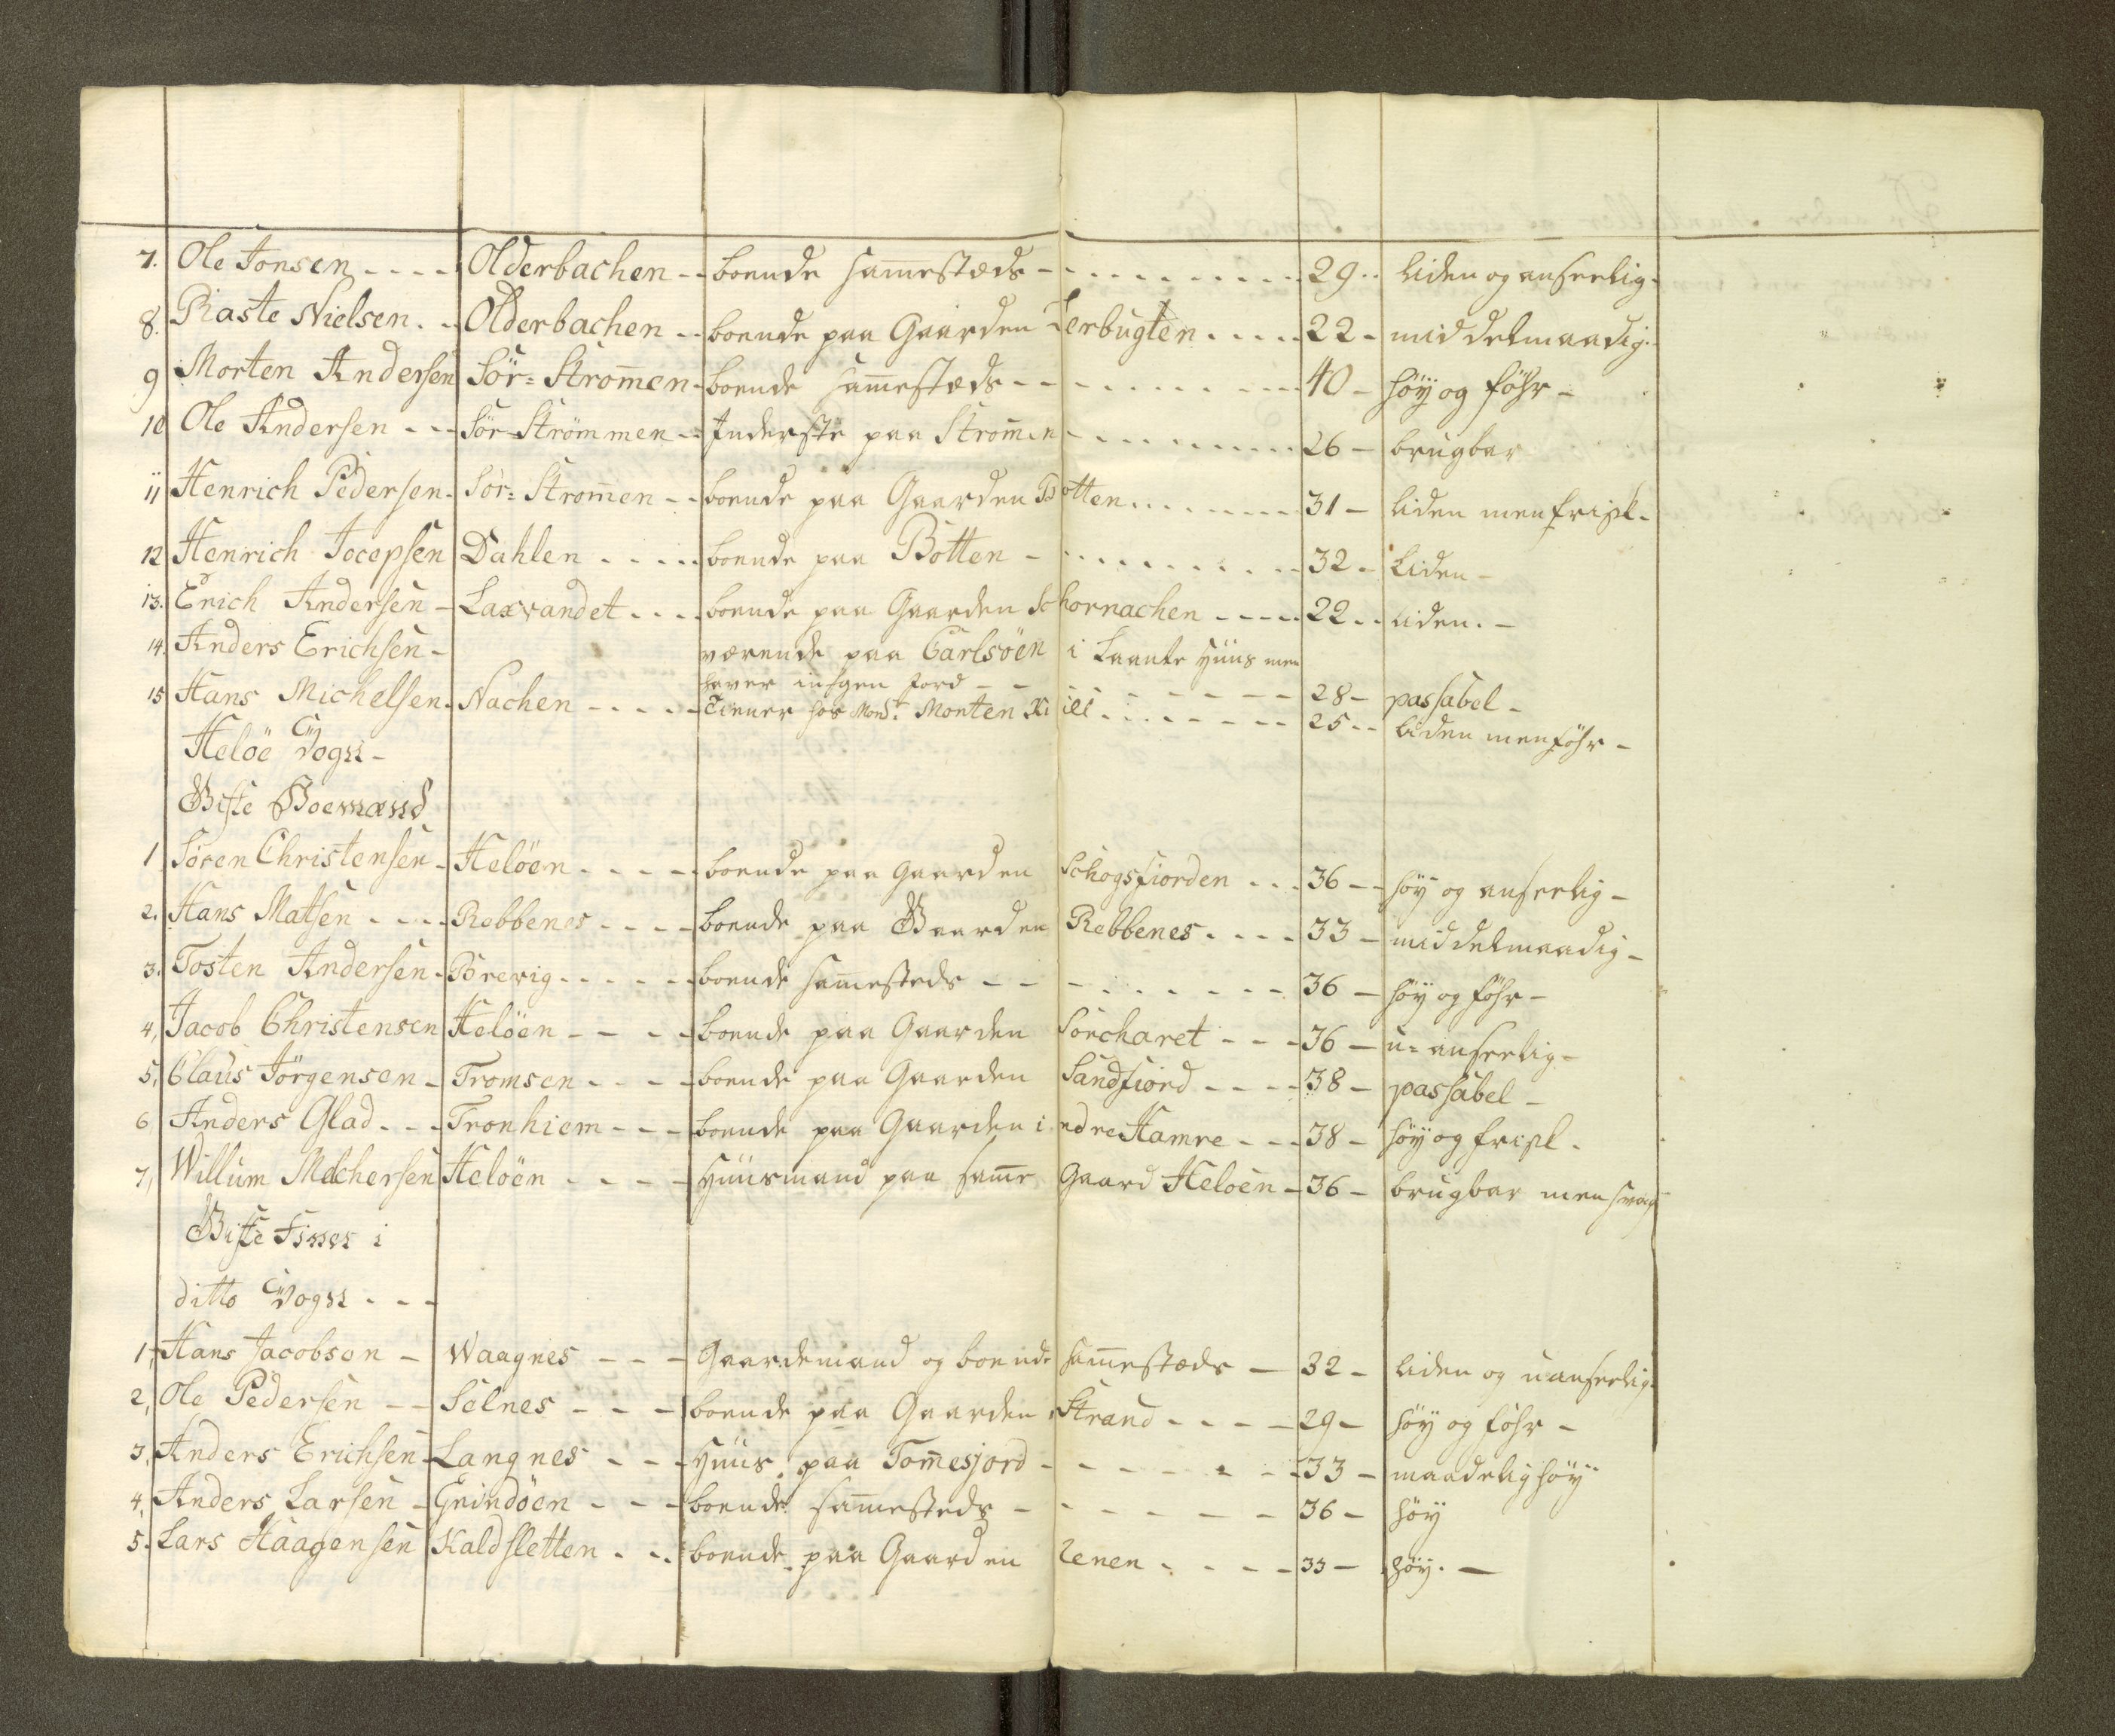 7. Ole Jonsen - - - - Olderbachen - - boende sam̄estæds - - - - - - - - - - - 29 - - liden og anseelig -
8. Raste Nielsen - - Olderbachen - - boende paa Gaarden Lerbugten - - - - 22 - middelmaadig -
9 Morten Andersen Sör = Strom̄en - boende sam̄estæds - - - - - - - - - 40 - höÿ og föhr -
10 Ole Andersen - - - Sör Strömmen - - Inderste paa Strom̄en - - - - - - - - 26 - brugbar
11 Henrich Pedersen - Sör = Strom̄en - - boende paa Gaarden Botten - - - - - - - 31 - liden men frisk -
12 Henrich Jocepsen Dahlen - - - - - boende paa Botten - - - - - - - - - - 32 - Liden -
13. Erich Andersen - Laxvandet - - - - boende paa Gaarden Schornachen - - - - 22 - - liden. -
14. Anders Erichsen - værende paa Carlsöen i Laante Hüüs men
haver ingen Jord - - - - - - - - - - - 28 - passabel -
15 Hans Michelsen - Nachen - - - - - Tiener hos Mons:r Monten - - - - - - - 25 - - liden men föhr -
Helöe Vogn -
Gifte Boemænd
1 Sören Christensen - Helöen - - - - - boende paa Gaarden Schogsfiorden - - - 36 - - höÿ og anseelig -
2. Hans Matsen - - - - Rebbenes - - - - boende paa Gaarden Rebbenes - - - - 33 - middelmaadig -
3. Tosten Andersen - Borevig - - - - - boende sam̄esteds - - - - - - - - - 36 - höÿ og föhr -
4, Jacob Christensen Helöen - - - - boende paa Gaarden Sorcharet - - - 36 - u = anseelig -
5, Claus Jörgensen - Tromsen - - - - boende paa Gaarden Sandfiord - - - - 38 - passabel -
6 Anders Glad - - - Tronhiem - - - boende paa Gaarden indre Hamre - - - 38 - höÿ og frisk -
7, Willum Melchersen Helöen - - - - Hüüsmand paa sam̄e Gaard Helöen - 36 - brugbar men svag
Gifte Finner i
ditto Vogn - - -
1, Hans Jacobsen - Waagnes - - - Gaardemand og boende sam̄estæds - 32 - liden og uanseelig -
2, Ole Pedersen - - Selnes - - - boende paa Gaarden Strand - - - - 29 - höÿ og föhr -
3, Anders Erichsen - Langnes - - - Hüüs paa Tom̄esjord - - - - - - - 33 - maadelig höÿ
4, Anders Larsen - Grindöen - - - boende sam̄esteds - - - - - - - 36 - höÿ
5. Lars Haagensen Kaldsletten - - - boende paa Gaarden Renen - - - - 33 - höÿ. -